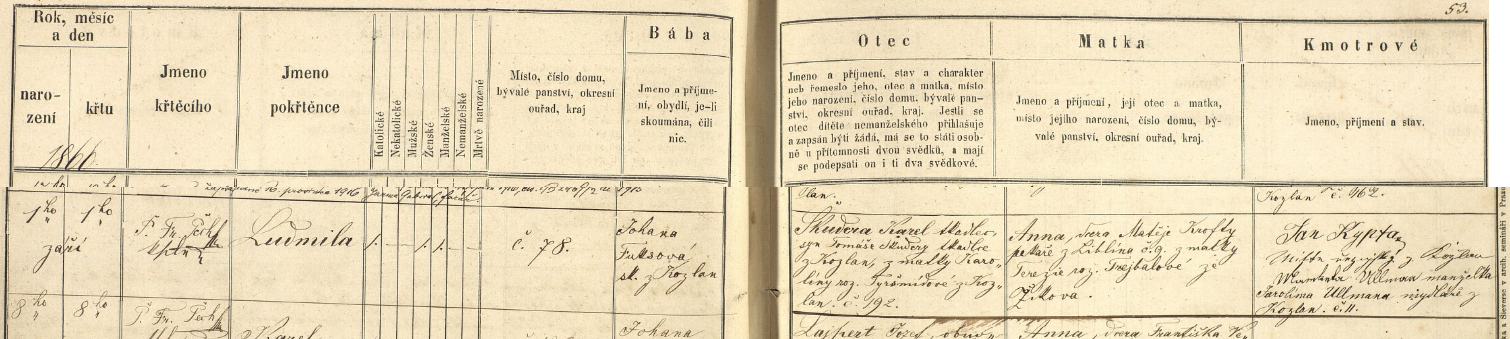 53.
Rok, měsíc
a den
naro-
zení
křtu
1866
Jmeno
křtěcího
Jmeno
pokřtěnce
Katolické
Nekatolické
Mužské
Ženské
Manželské
Nemanželské
Mrtvě narozené
Místo, číslo domu,
bývalé panství, okresní
ouřad, kraj
Bába
Jmeno a příjme-
ní, obydlí, je-li
skoumána, čili
nic.
Otec
Jmeno a příjmení, stav a charakter
neb řemeslo jeho, otec a matka, místo
jeho narození, číslo domu, bývalé pan-
ství, okresní ouřad, kraj. Jestli se
otec dítěte nemanželského přihlašuje
a zapsán býti žádá, má se to státi osob-
ně u přítomnosti dvou svědků, a mají
se podepsati on i ti dva svědkové.
Matka
Jmeno a příjmení, její otec a matka,
místo jejího narození, číslo domu, bý-
valé panství, okresní ouřad, kraj.
Kmotrové
Jmeno, příjmení a stav.
prosince 1916
1910
Kozlan č. 962.
1ho 1ho
září
P. Fr.
Ludmila
1. — — 1. 1. — —
č. 78.
Johana
Fuksova
sk. z Kozlan
Skudera Karel tkadlec,
syn Tomáše Skudery tkadlce
z Kozlan, z matky Karo-
liny roz. z Koz-
lan. č. 192.
Anna, dcera Matěje Krofty
pekaře z Liblína č. 9. z matky
Terezie roz. Trejbalové ze
Žikova.
Jan Kypta
z Kozlan
Ullman manželka
Jarolíma Ullmana mydláře z
Kozlan. č. 11.
8ho 8ho
P. Fr.
Karel
Johana
Lajpert Jozef, obuv-
Anna, dcera Františka Ve-